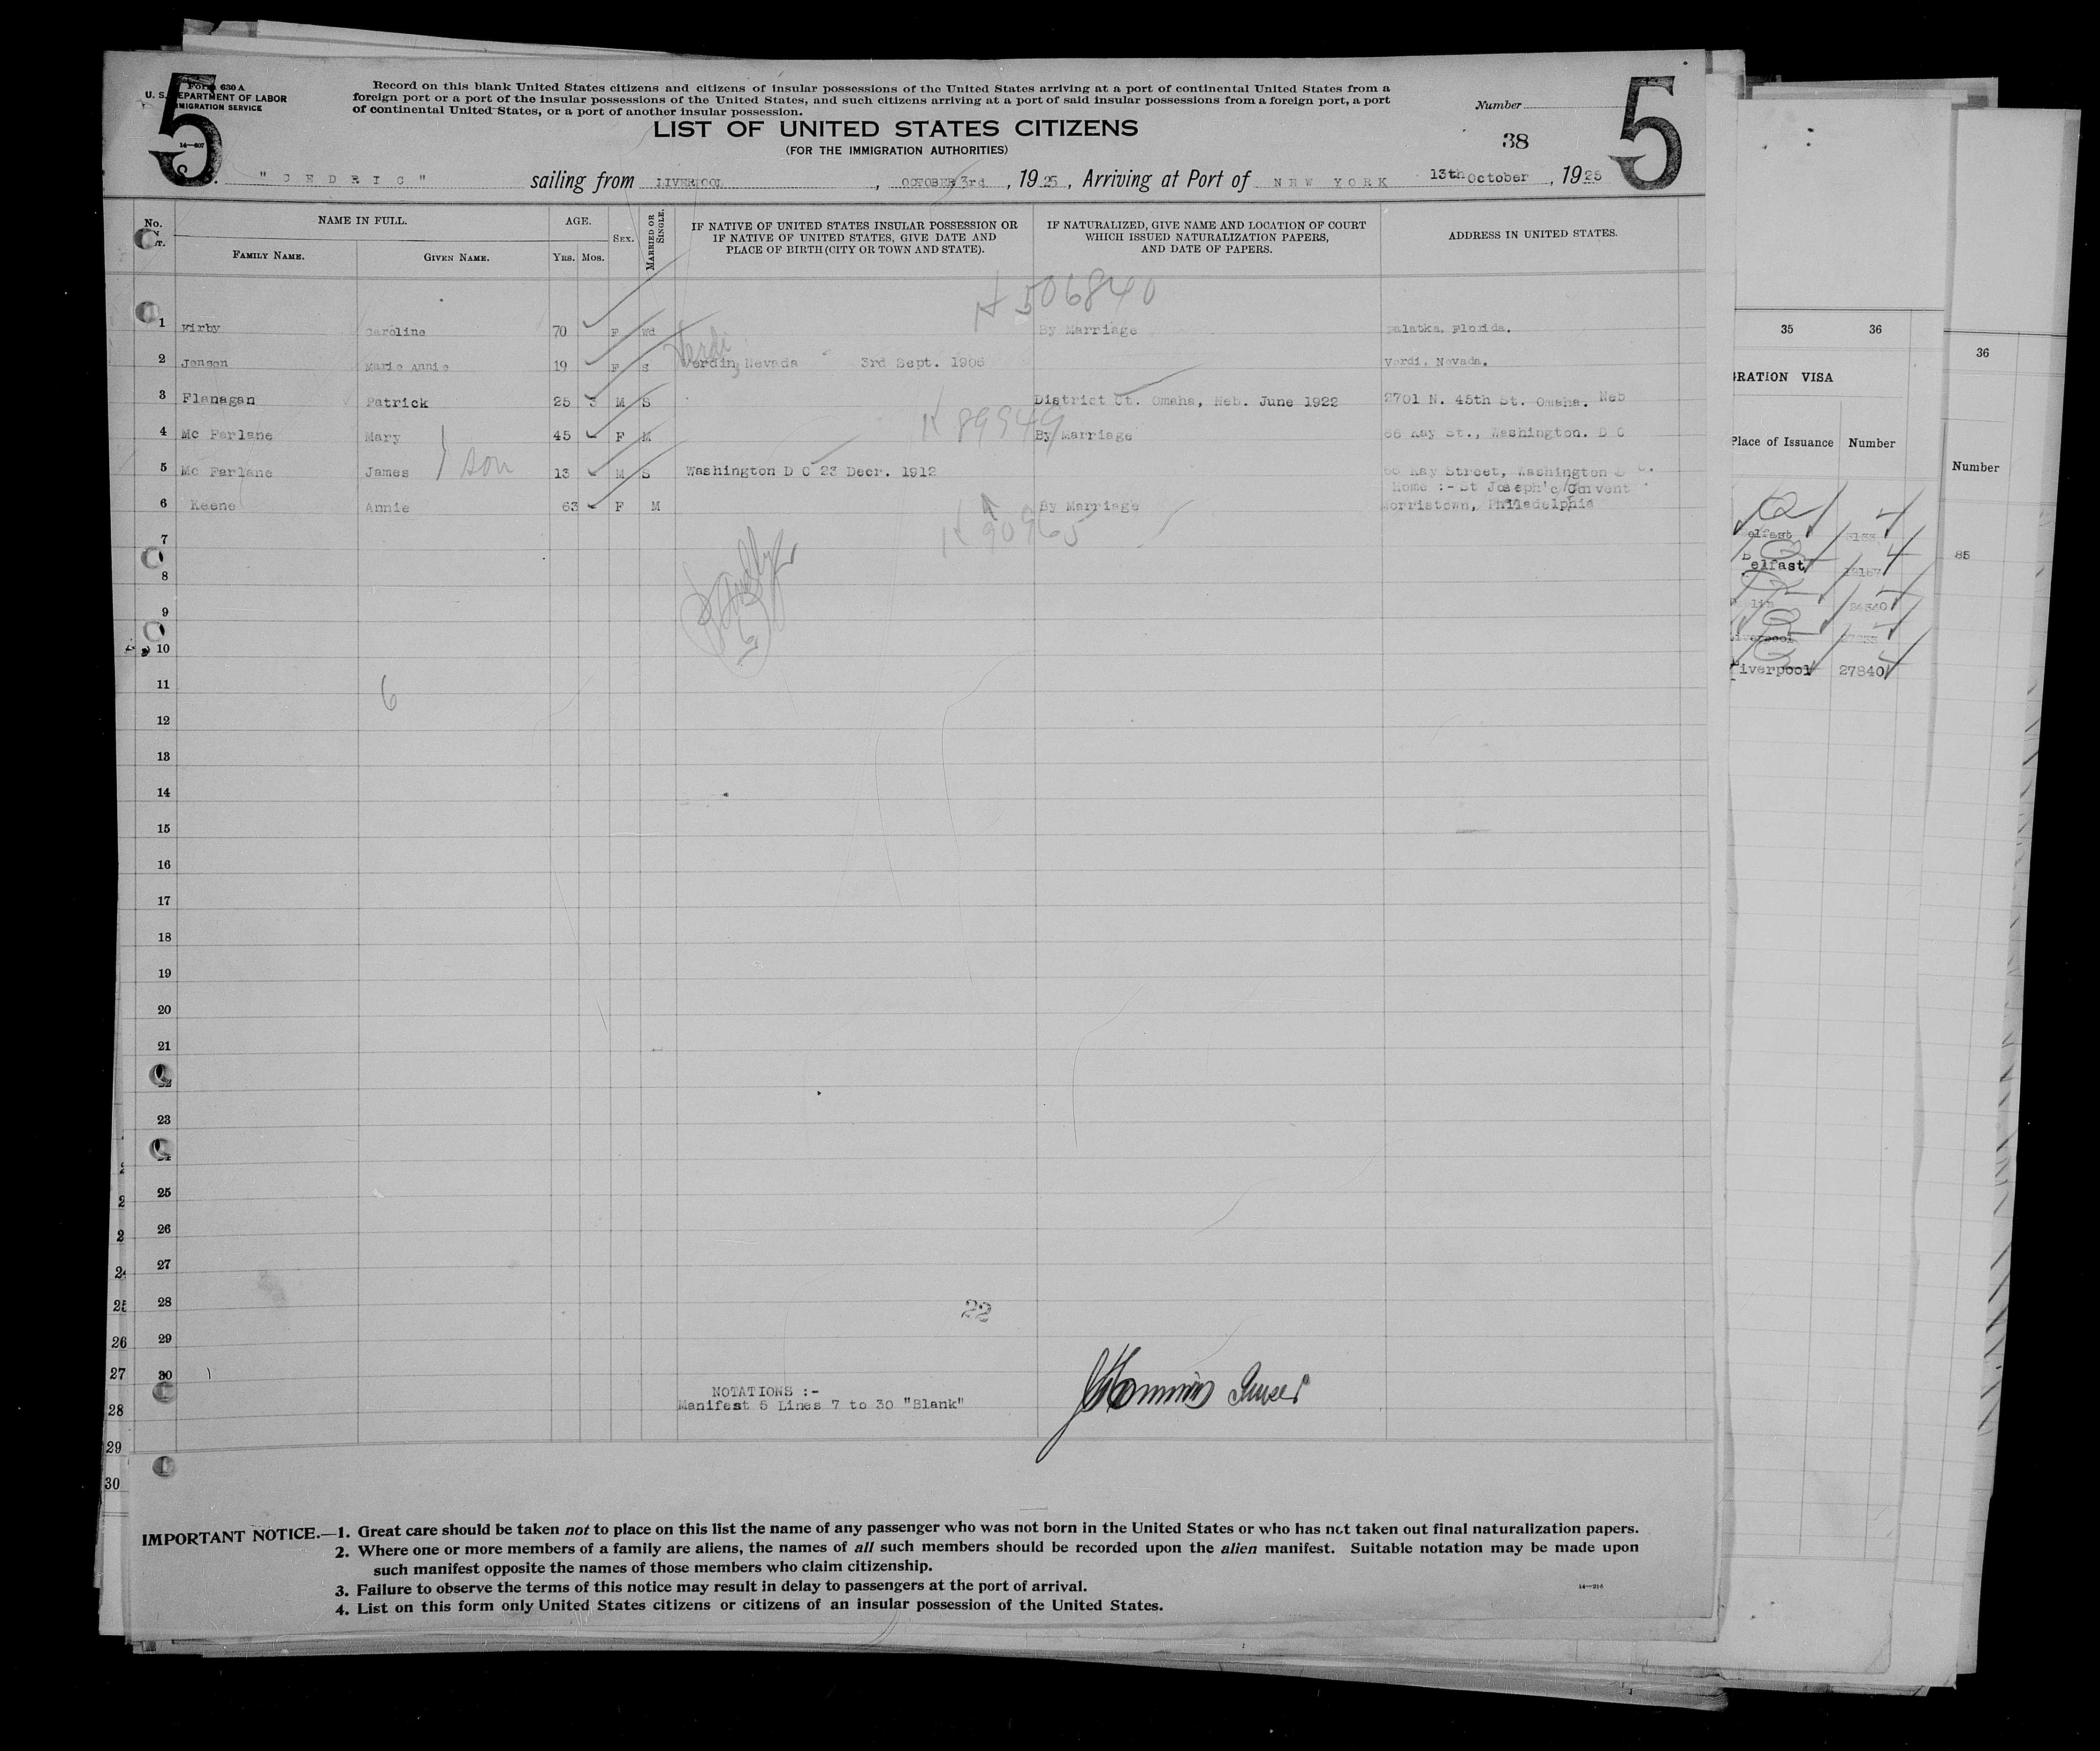 5
Form 630 A
U. S. DEPARTMENT OF LABOR
IMMIGRATION SERVICE
14—607
Record on this blank United States citizens and citizens of insular possessions of the United States arriving at a port of continental United States from a
foreign port or a port of the insular possessions of the United States, and such citizens arriving at a port of said insular possessions from a foreign port, a port
of continental United States, or a port of another insular possession.
Number
38
5
LIST OF UNITED STATES CITIZENS
(FOR THE IMMIGRATION AUTHORITIES)
"CEDRIC" sailing from LIVERPOOL, OCTOBER 3rd, 1925, Arriving at Port of NEW YORK 13th October, 1925
No.
NAME IN FULL.
FAMILY NAME.
GIVEN NAME.
AGE.
YRS. MOS.
SEX.
MARRIED OR SINGLE.
IF NATIVE OF UNITED STATES INSULAR POSSESSION OR
IF NATIVE OF UNITED STATES, GIVE DATE AND
PLACE OF BIRTH (CITY OR TOWN AND STATE).
IF NATURALIZED, GIVE NAME AND LOCATION OF COURT
WHICH ISSUED NATURALIZATION PAPERS,
AND DATE OF PAPERS.
ADDRESS IN UNITED STATES.
506840
1 Kirby Caroline 70 F Wd By Marriage Palatka, Florida.
Verdi
2 Jensen Marie Annie 19 F S Verdin, Nevada 3rd Sept. 1906 Verdi, Nevada.
3 Flanagan Patrick 25 3 M S District Ct. Omaha, Neb. June 1922 2701 N. 45th St. Omaha. Neb
89949
4 Mc Farlane Mary 45 F M By Marriage 66 Kay St., Washington. D C
son
5 Mc Farlane James 13 M S Washington D C 23 Decr. 1912 66 Kay Street, Washington D C.
Home :- St Joseph's Convent
6 Keene Annie 63 F M By Marriage Morristown, Philadelphia
90965
7
8
9
10
6
11
12
13
14
15
16
17
18
19
20
21
22
23
25
26
27
28
22
29
30
NOTATIONS :-
Manifest 5 Lines 7 to 30 "Blank"
IMPORTANT NOTICE.—1. Great care should be taken not to place on this list the name of any passenger who was not born in the United States or who has not taken out final naturalization papers.
2. Where one or more members of a family are aliens, the names of all such members should be recorded upon the alien manifest. Suitable notation may be made upon
such manifest opposite the names of those members who claim citizenship.
3. Failure to observe the terms of this notice may result in delay to passengers at the port of arrival.
4. List on this form only United States citizens or citizens of an insular possession of the United States.
14—216
26
27
28
29
30
35 36
GRATION VISA
Place of Issuance Number
Belfast
Belfast
Liverpool
Liverpool 27840
36
Number
85